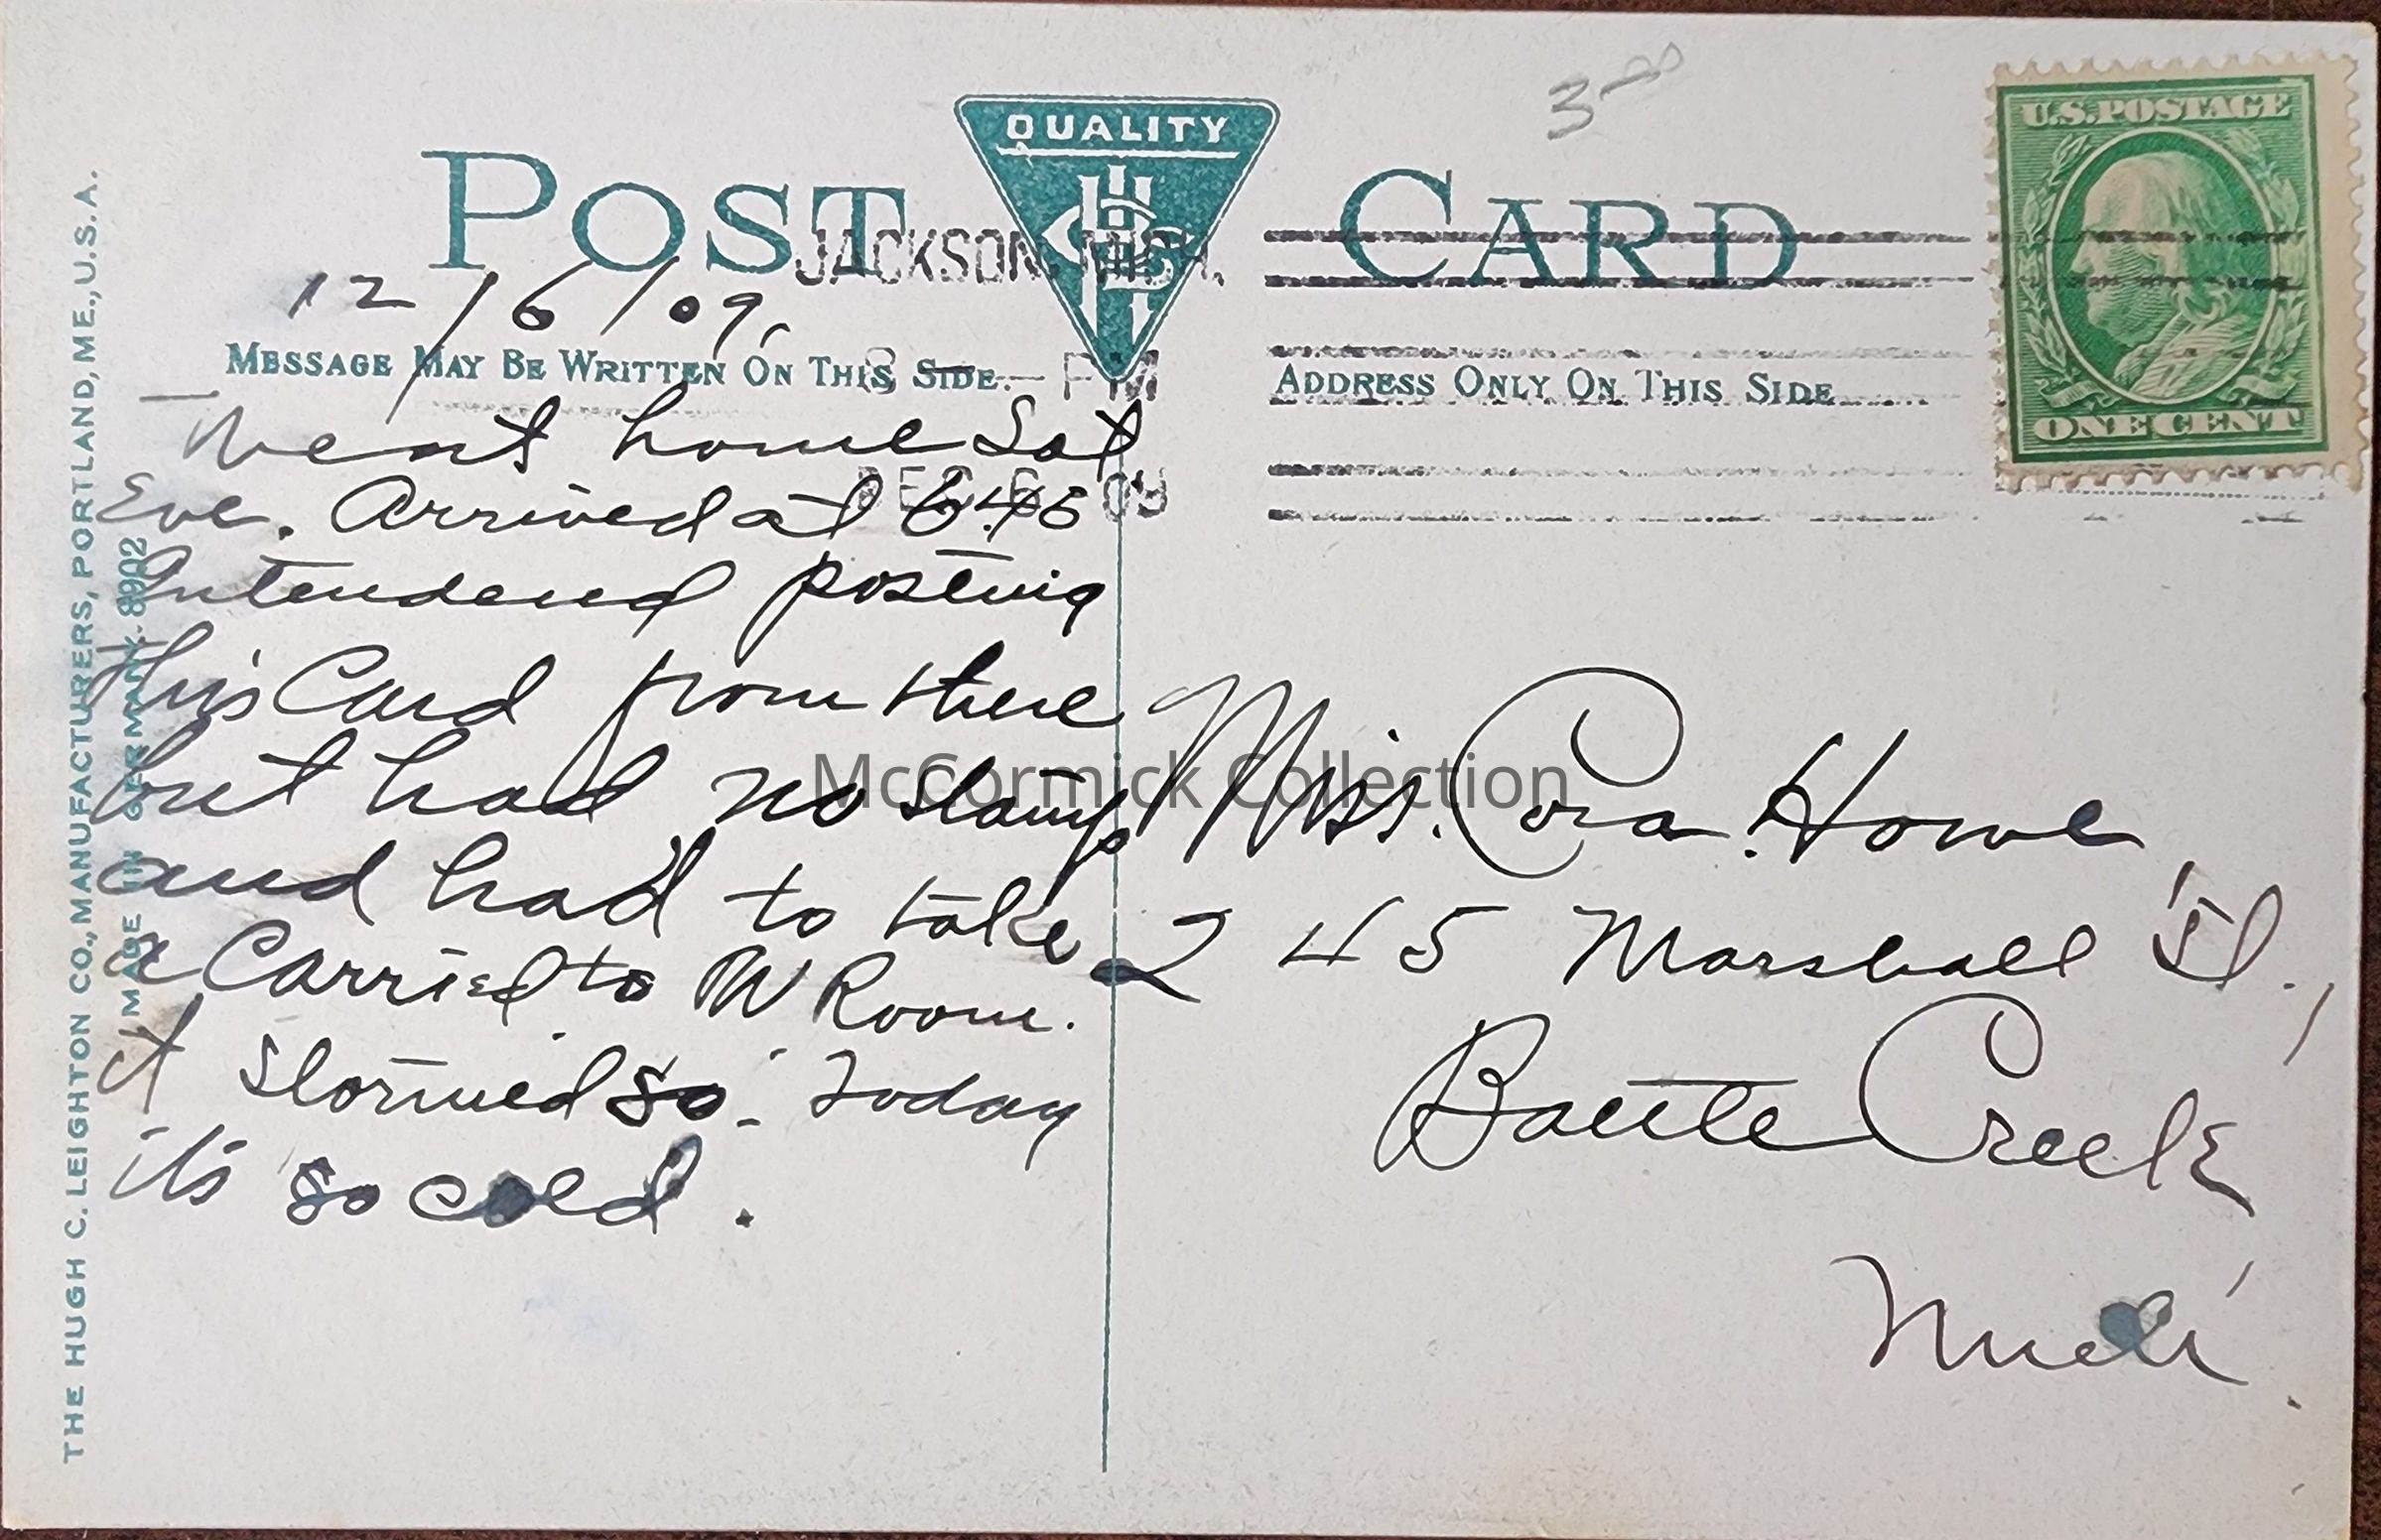 3 00
QUALITY
POST CARD
U.S. POSTAGE
ONE CENT
JACKSON, MICH.
PM
DEC 6 09
12/6/09,
MESSAGE MAY BE WRITTEN ON THIS SIDE.
ADDRESS ONLY ON THIS SIDE
Went home Sat
Eve. Arrived at
Intended posting
this Card from there
but had no stamp
and had to take
a Carried to W Room.
it stormed so. Today
its so cold.
Miss. Cora Howe,
245 Marshall St.,
Battle Creek
Mich.
THE HUGH C. LEIGHTON CO., MANUFACTURERS, PORTLAND, ME., U.S.A.
MADE IN GERMANY. 8902
McCormick Collection